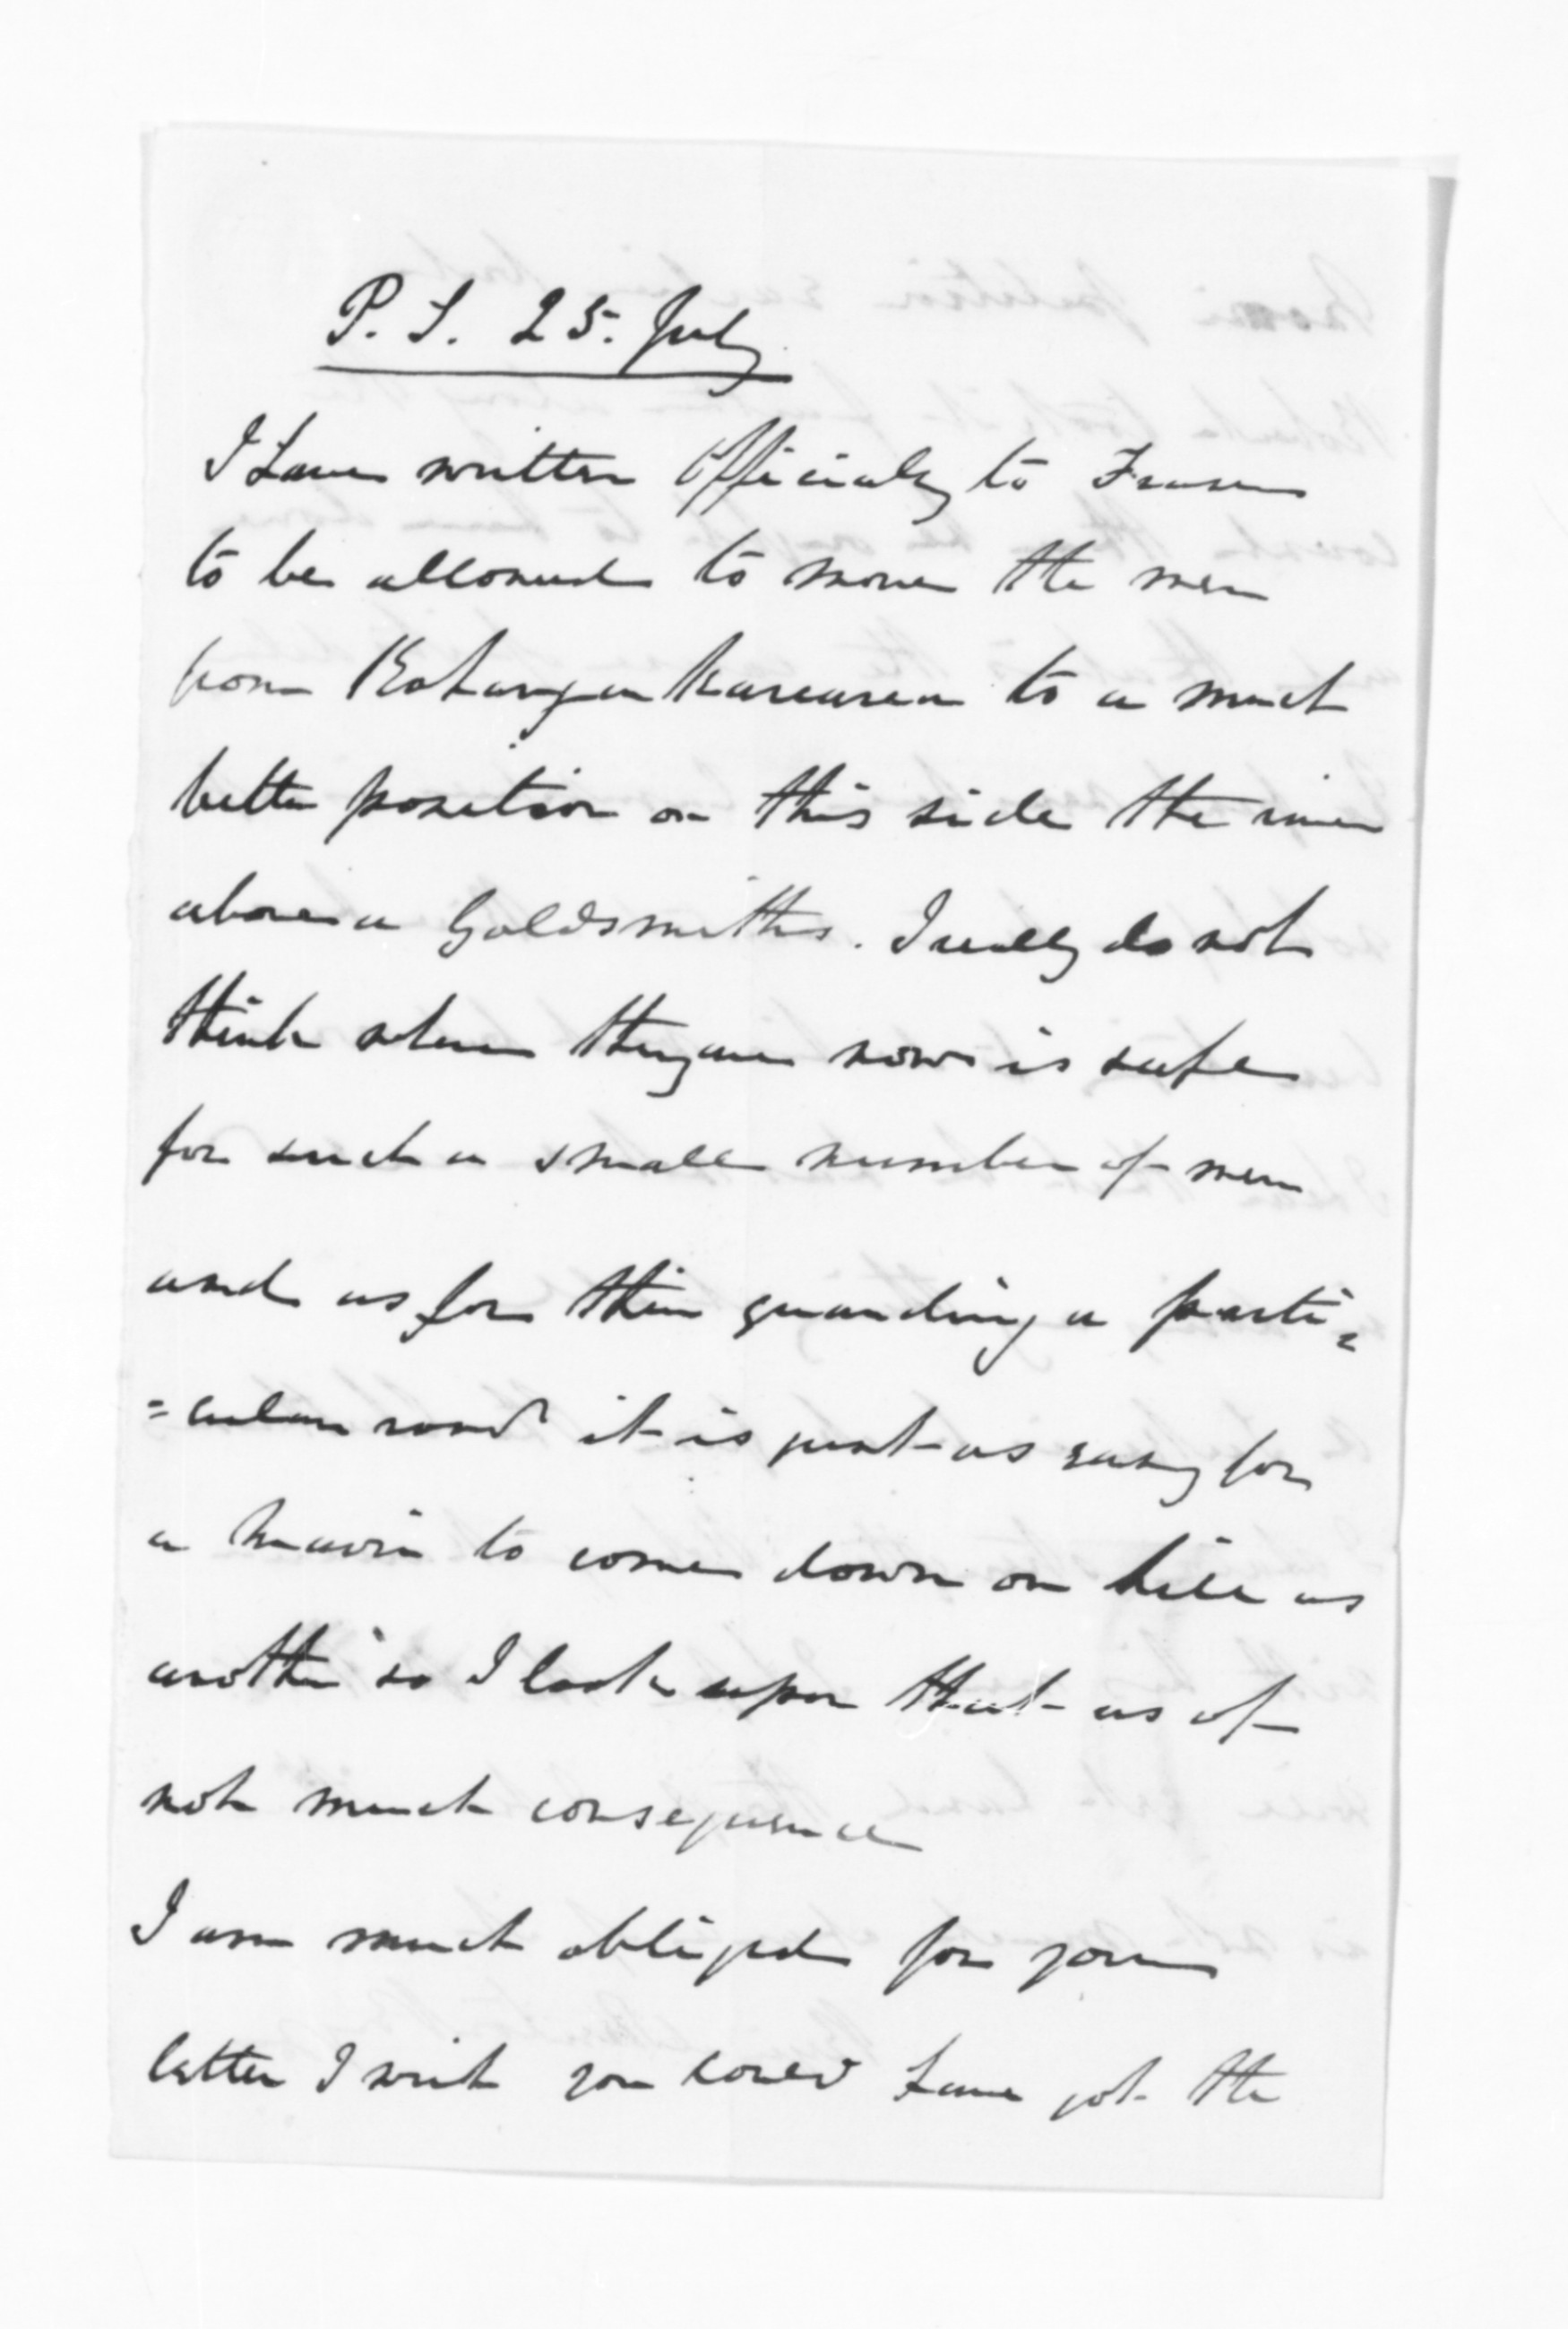 P. S. 25. July
I have written officially to Fraser
to be allowed to move the men
from Kohanga Karearea to a much
better position on this side the river
above a Goldsmiths. I really do not
think where they are now is safe
for such a small number of men
and as for their guarding a parti=
=cular road it is just as easy for
a Maori to come down on hill as
another so I look upon that as of
not much consequence
I am much obliged for your
letter I wish you could have got the